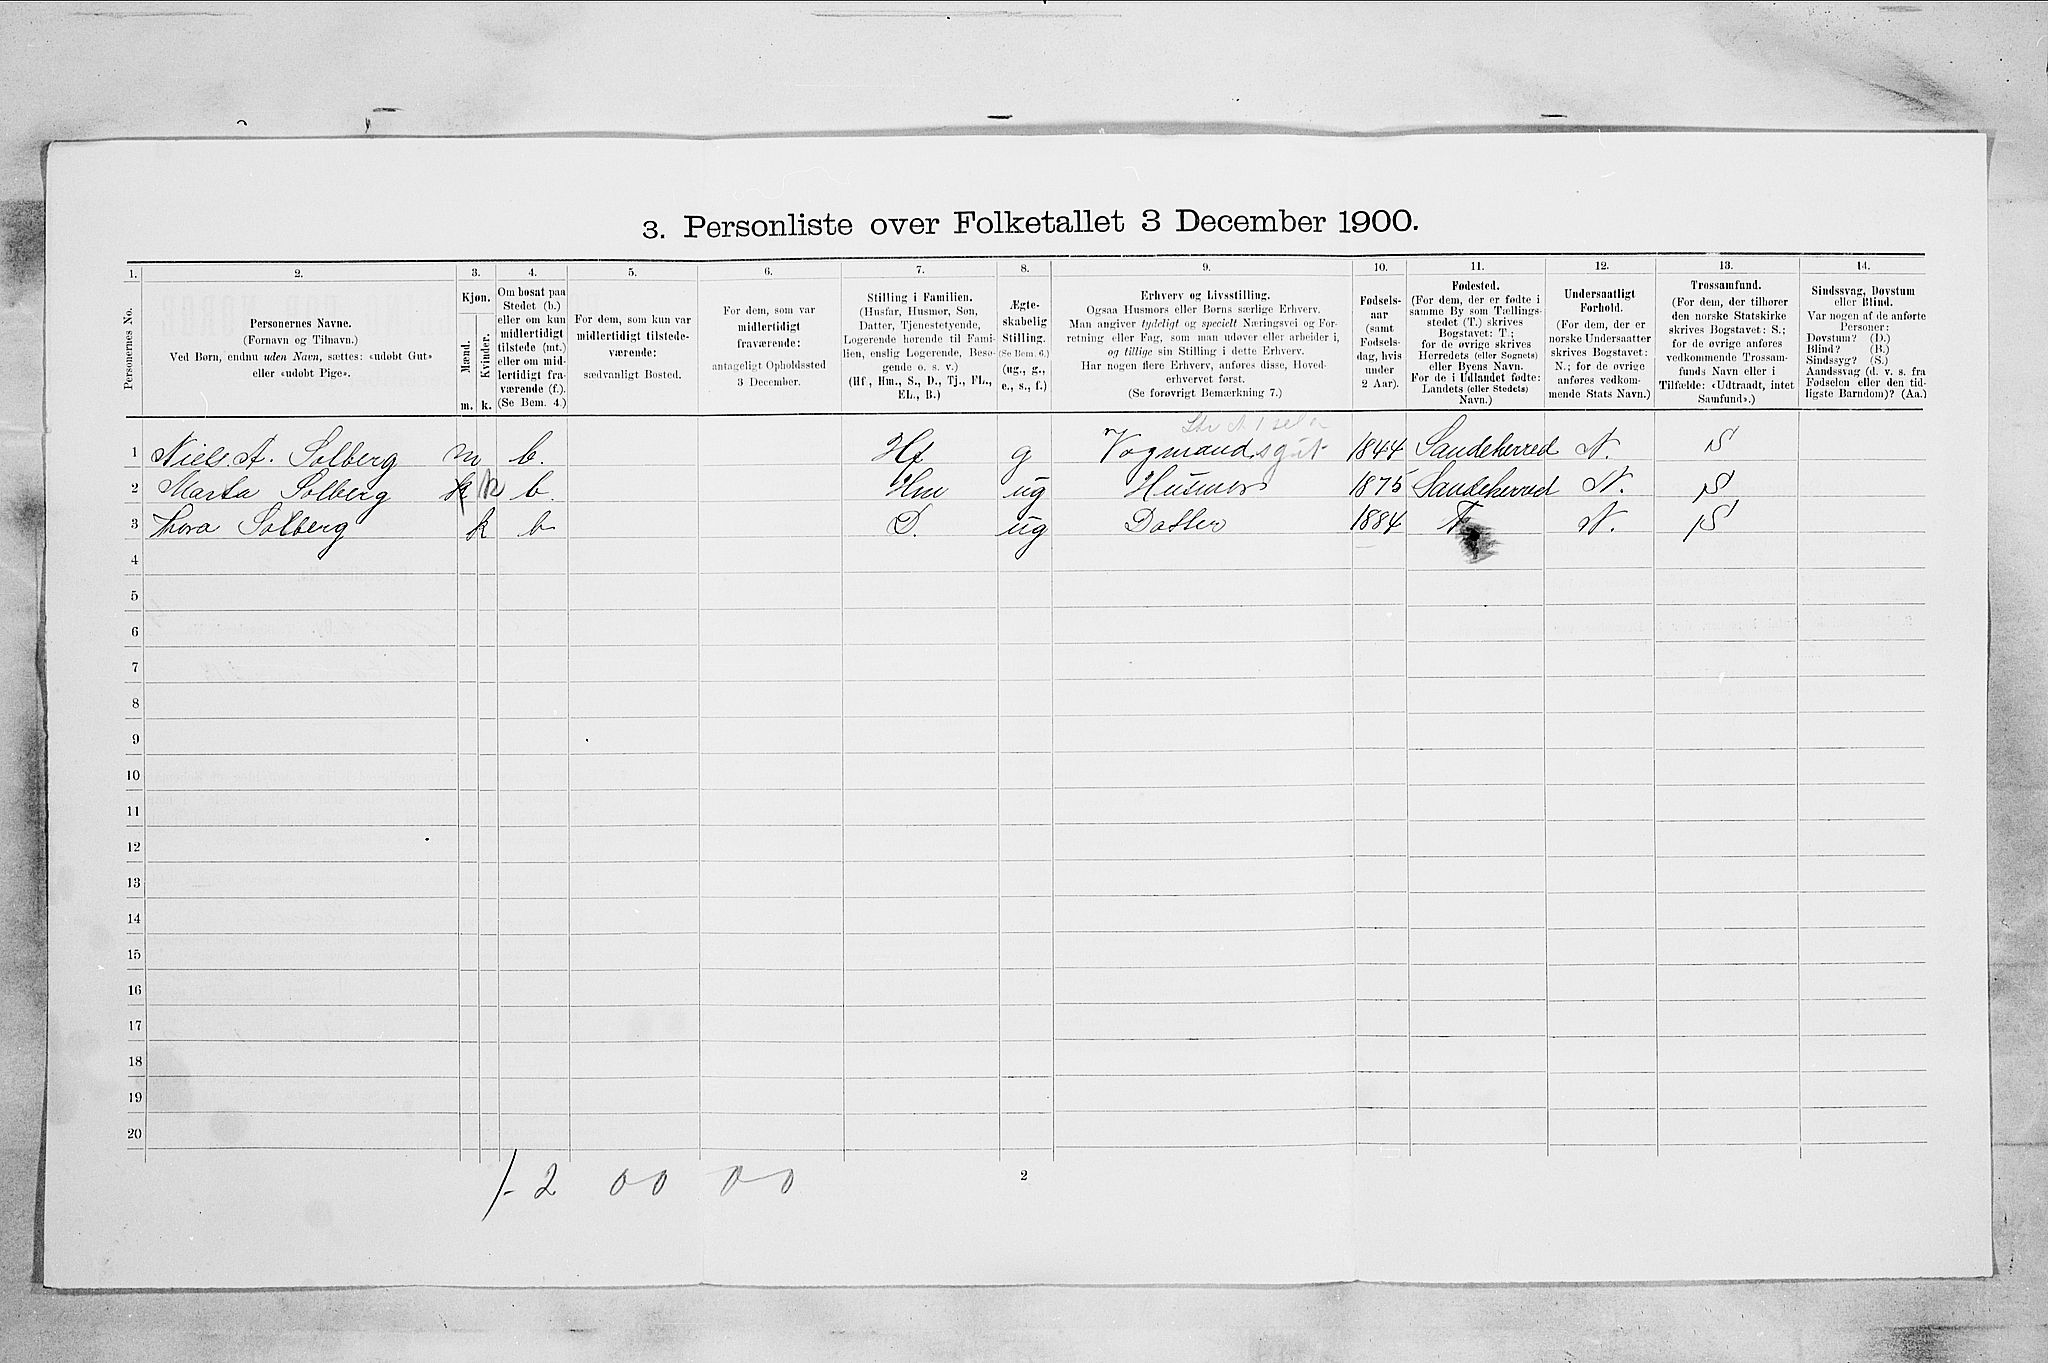 3. Personliste over Folketallet 3 December 1900.
1. 2. 3. 4. 5. 6. 7. 8. 9. 10. 11. 12. 13. 14.
Personernes No.
Personernes Navne.
(Fornavn og Tilnavn.)
Ved Børn, endnu uden Navn, sættes: «udøbt Gut»
eller «udøbt Pige».
Kjøn.
Mænd.
Kvinder.
m. k.
Om bosat paa
Stedet (b.)
eller om kun
midlertidigt
tilstede (mt.)
eller om mid-
lertidigt fra-
værende (f.).
(Se Bem. 4.)
For dem, som kun var
midlertidigt tilstede-
værende:
sædvanligt Bosted.
For dem, som var
midlertidigt
fraværende:
antageligt Opholdssted
3 December.
Stilling i Familien.
(Husfar, Husmor, Søn,
Datter, Tjenestetyende,
Logerende hørende til Fami-
lien, enslig Logerende, Besø-
gende o. s. v.)
(Hf, Hm., S., D., Tj., FL.,
EL., B.)
Ægte-
skabelig
Stilling.
(Se Bem. 6.)
(ug., g.,
e., s., f.)
Erhverv og Livsstilling.
Ogsaa Husmors eller Børns særlige Erhverv.
Man angiver tydeligt og specielt Næringsvei og For-
retning eller Fag, som man udøver eller arbeider i,
og tillige sin Stilling i dette Erhverv.
Har nogen flere Erhverv, anføres disse, Hoved-
erhvervet først.
(Se forøvrigt Bemærkning 7.)
Fødsels-
aar
(samt
Fødsels-
dag, hvis
under
2 Aar).
Fødested.
(For dem, der er fødte i
samme By som Tællings-
stedet (T.) skrives
Bogstavet: T.;
for de øvrige skrives
Herredets (eller Sognets)
eller Byens Navn.
For de i Udlandet fødte:
Landets (eller Stedets)
Navn.)
Undersaatligt
Forhold.
(For dem, der er
norske Undersaatter
skrives Bogstavet:
N.; for de øvrige
anføres vedkom-
mende Stats Navn.)
Trossamfund.
(For dem, der tilhører
den norske Statskirke
skrives Bogstavet: S.;
for de øvrige anføres
vedkommende Trossam-
funds Navn eller i
Tilfælde: «Udtraadt, intet
Samfund».)
Sindssvag, Døvstum
eller Blind.
Var nogen af de anførte
Personer:
Døvstum? (D.)
Blind? (B.)
Sindssyg? (S.)
Aandssvag (d. v. s. fra
Fødselen eller den tid-
ligste Barndom)? (Aa.)
1 Niels. A. Solberg m b. Hf g Vogmand 1844 Sandeherred N. S
2 Marta Solberg k k b. Hm ug Husmor 1875 Sandeherred N. S
3 Thora Solberg k b D. ug Datter 1884 T. N. S
4
5
6
7
8
9
10
11
12
13
14
15
16
17
18
19
20
1-2 00 00
2